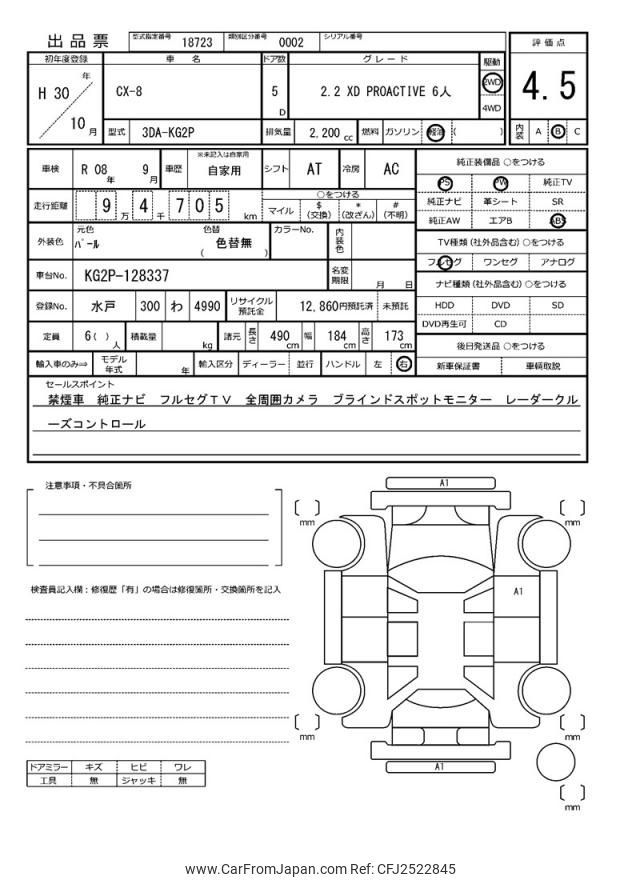 出品票 型式指定番号 18723 類別区分番号 0002 シリアル番号
評価点
4.5
内装 A B C
初年度登録 車名 ドア数 グレード 駆動
H 30 年 CX-8 5 D 2.2 XD PROACTIVE 6人 2WD
4WD
10 月 型式 3DA-KG2P 排気量 2,200 cc 燃料 ガソリン 軽油 ( )
車検 R 08 年 9 月 車歴 ※未記入は自家用 自家用 シフト AT 冷房 AC
走行距離 9 万 4 千 7 0 5 km
○をつける
マイル $ (交換) * (改ざん) # (不明)
外装色 元色 パール 色替 色替無 ( ) カラーNo. 内装色
車台No. KG2P-128337 名変期限 月 日
登録No. 水戸 300 わ 4990 リサイクル預託金 12,860円預託済 未預託
定員 6( )人 積載量 kg 諸元 長さ 490 cm 幅 184 cm 高さ 173 cm
輸入車のみ⇒ モデル年式 年 輸入区分 ディーラー 並行 ハンドル 左 右
純正装備品 ○をつける
PS PW 純正TV
純正ナビ 革シート SR
純正AW エアB ABS
TV種類 (社外品含む) ○をつける
フルセグ ワンセグ アナログ
ナビ種類 (社外品含む) ○をつける
HDD DVD SD
DVD再生可 CD
後日発送品 ○をつける
新車保証書 車輌取説
セールスポイント
禁煙車 純正ナビ フルセグTV 全周囲カメラ ブラインドスポットモニター レーダークル
ーズコントロール
注意事項・不具合箇所
検査員記入欄:修復歴「有」の場合は修復箇所・交換箇所を記入
A1
mm
mm
A1
mm
mm
A1
mm
ドアミラー キズ ヒビ ワレ
工具 無 ジャッキ 無
www.CarFromJapan.com Ref: CFJ2522845